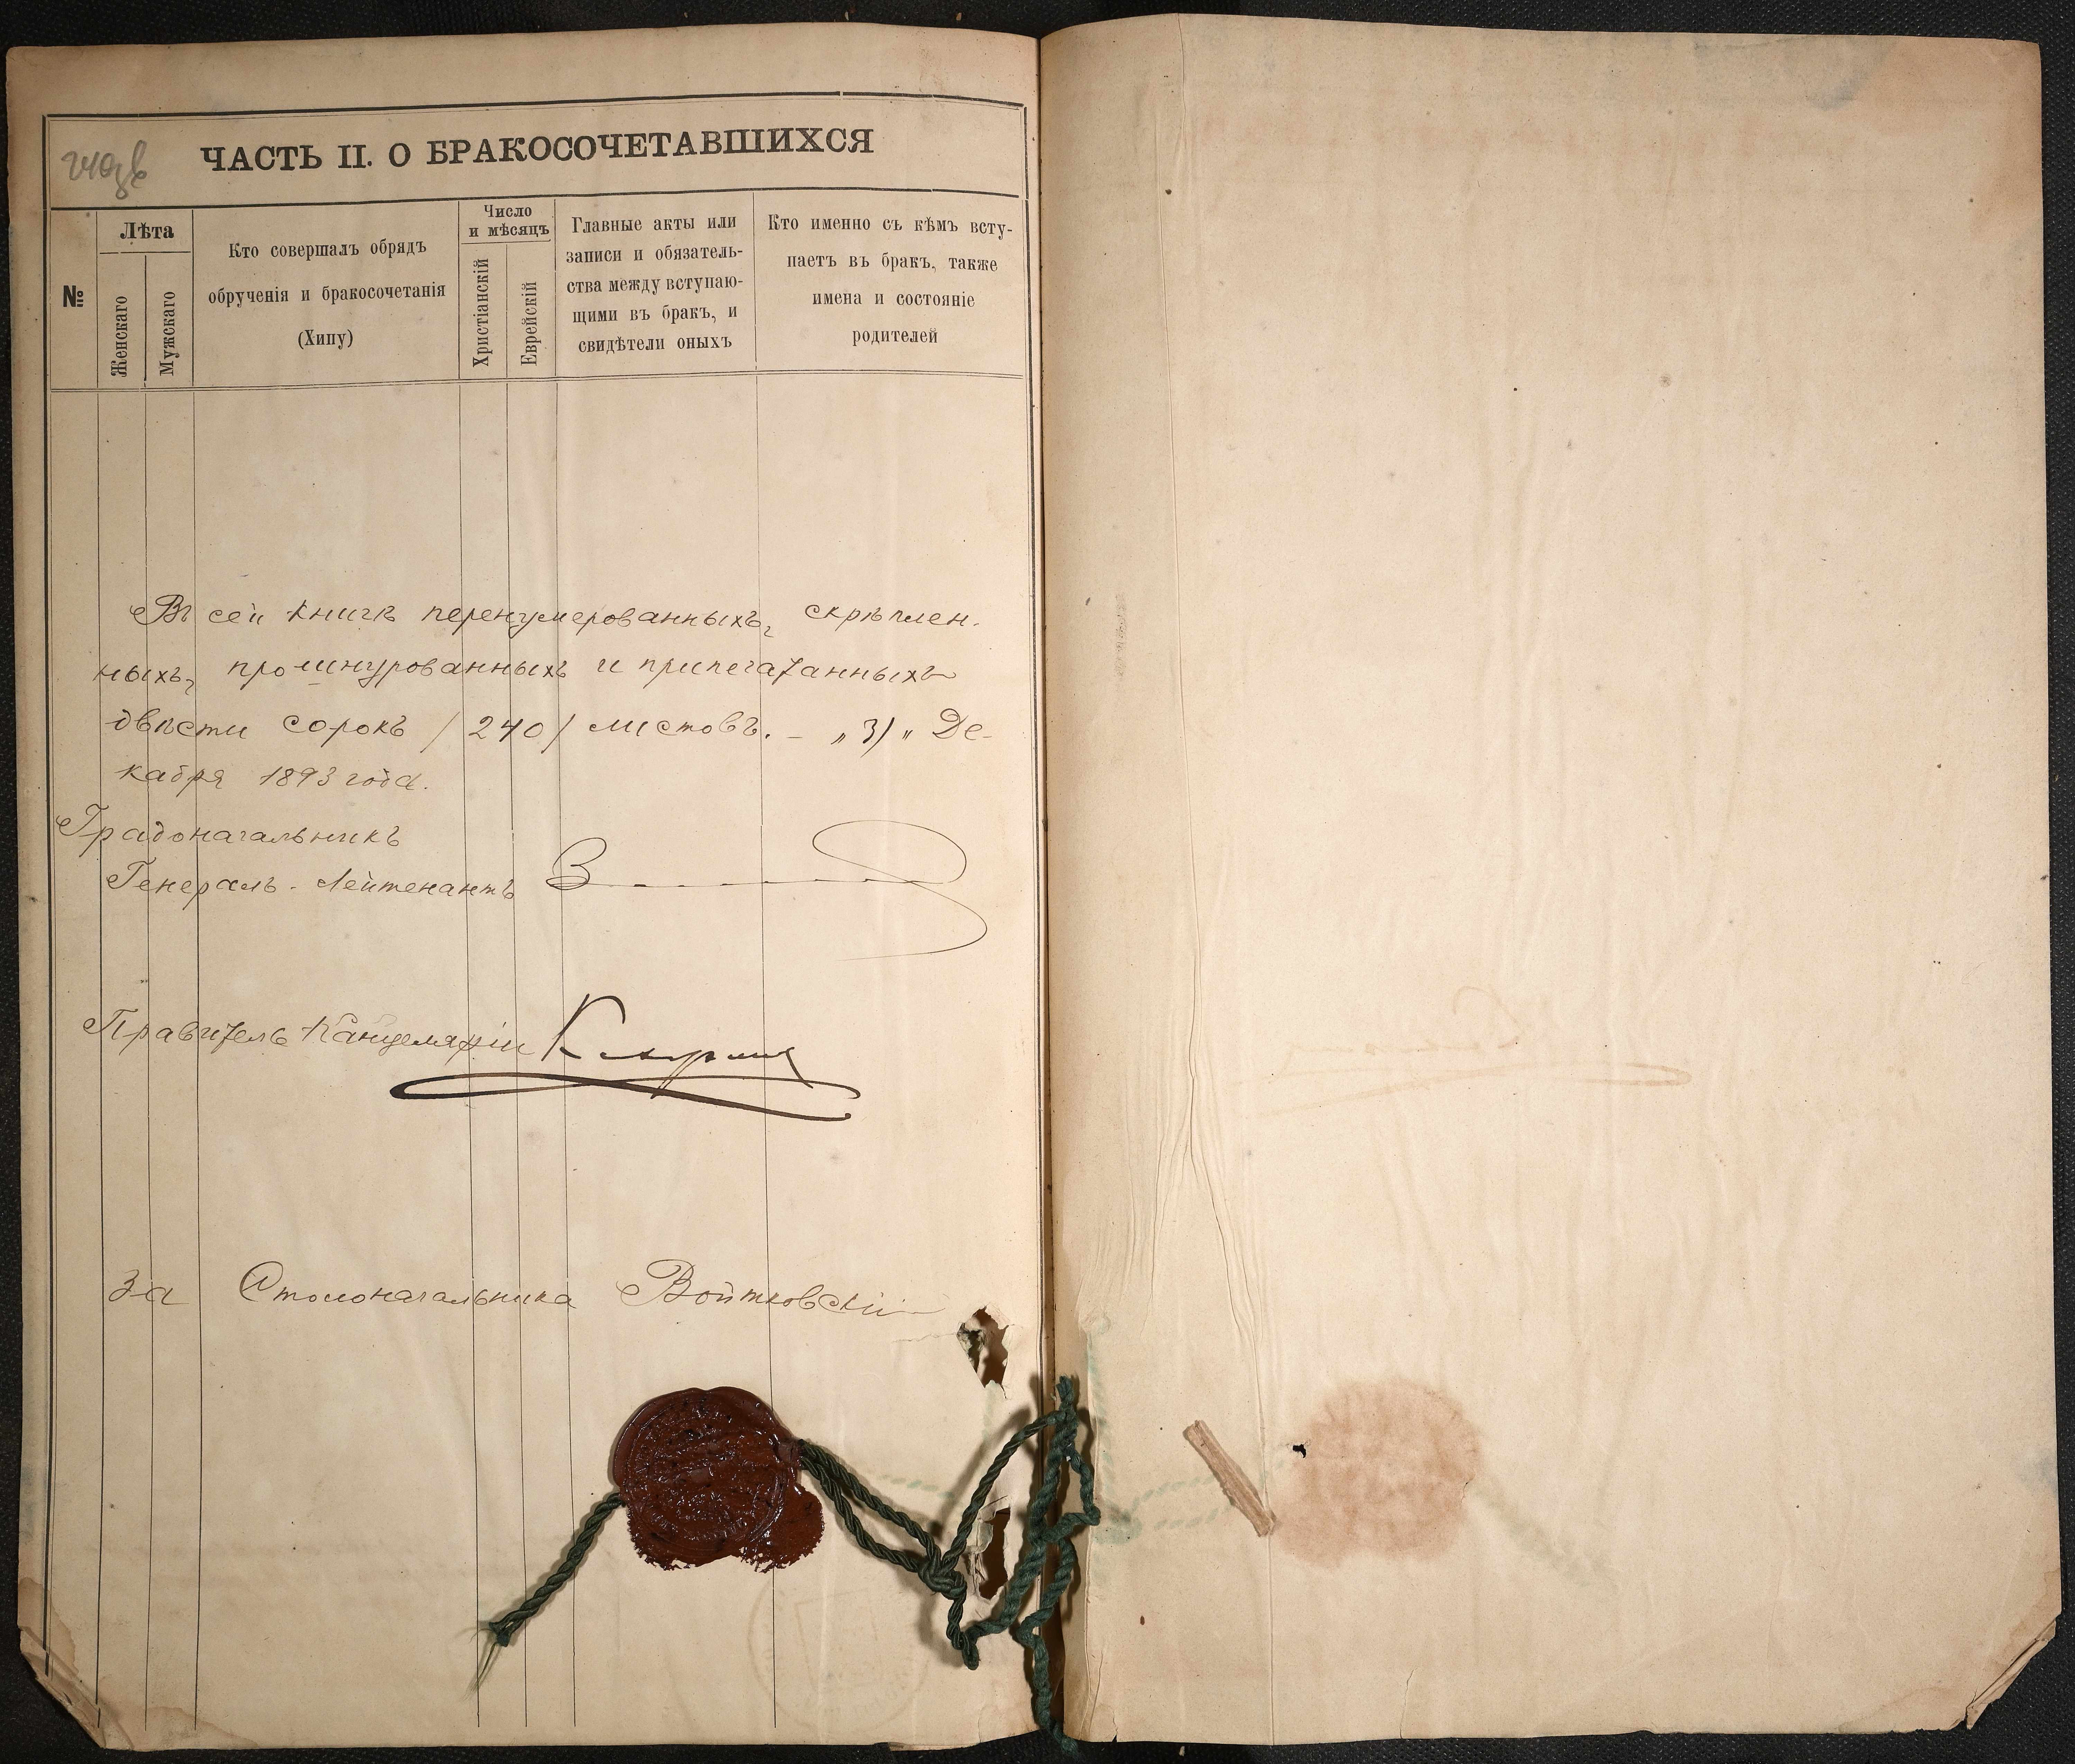 240зв
ЧАСТЬ II. О БРАКОСОЧЕТАВШИХСЯ
№
Лѣта
Женскаго
Мужскаго
Кто совершалъ обрядъ
обрученія и бракосочетанія
(Хипу)
Число
и мѣсяцъ
Христіанскій
Еврейскій
Главные акты или
записи и обязатель-
ства между вступаю-
щими въ бракъ, и
свидѣтели оныхъ
Кто именно съ кѣмъ всту-
паетъ въ бракъ, также
имена и состояніе
родителей
Въ сей книгѣ перенумерованныхъ, скрѣплен-
ныхъ, прошнурованныхъ и припечатанныхъ
двѣсти сорокъ /240/ листовъ. – „31„ Де-
кабря 1893 года.
Градоначальникъ
Генералъ-Лейтенантъ З
Правитель Канцеляріи
За Столоначальника Войтковскій